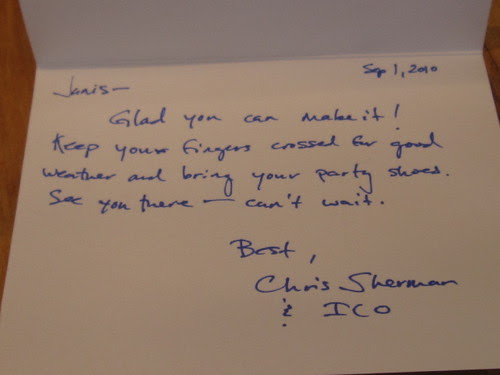 Sep 1, 2010
Janis—
Glad you can make it!
Keep your fingers crossed for good
weather and bring your party shoes.
See you there — can't wait.
Best,
Chris Sherman
& ICO